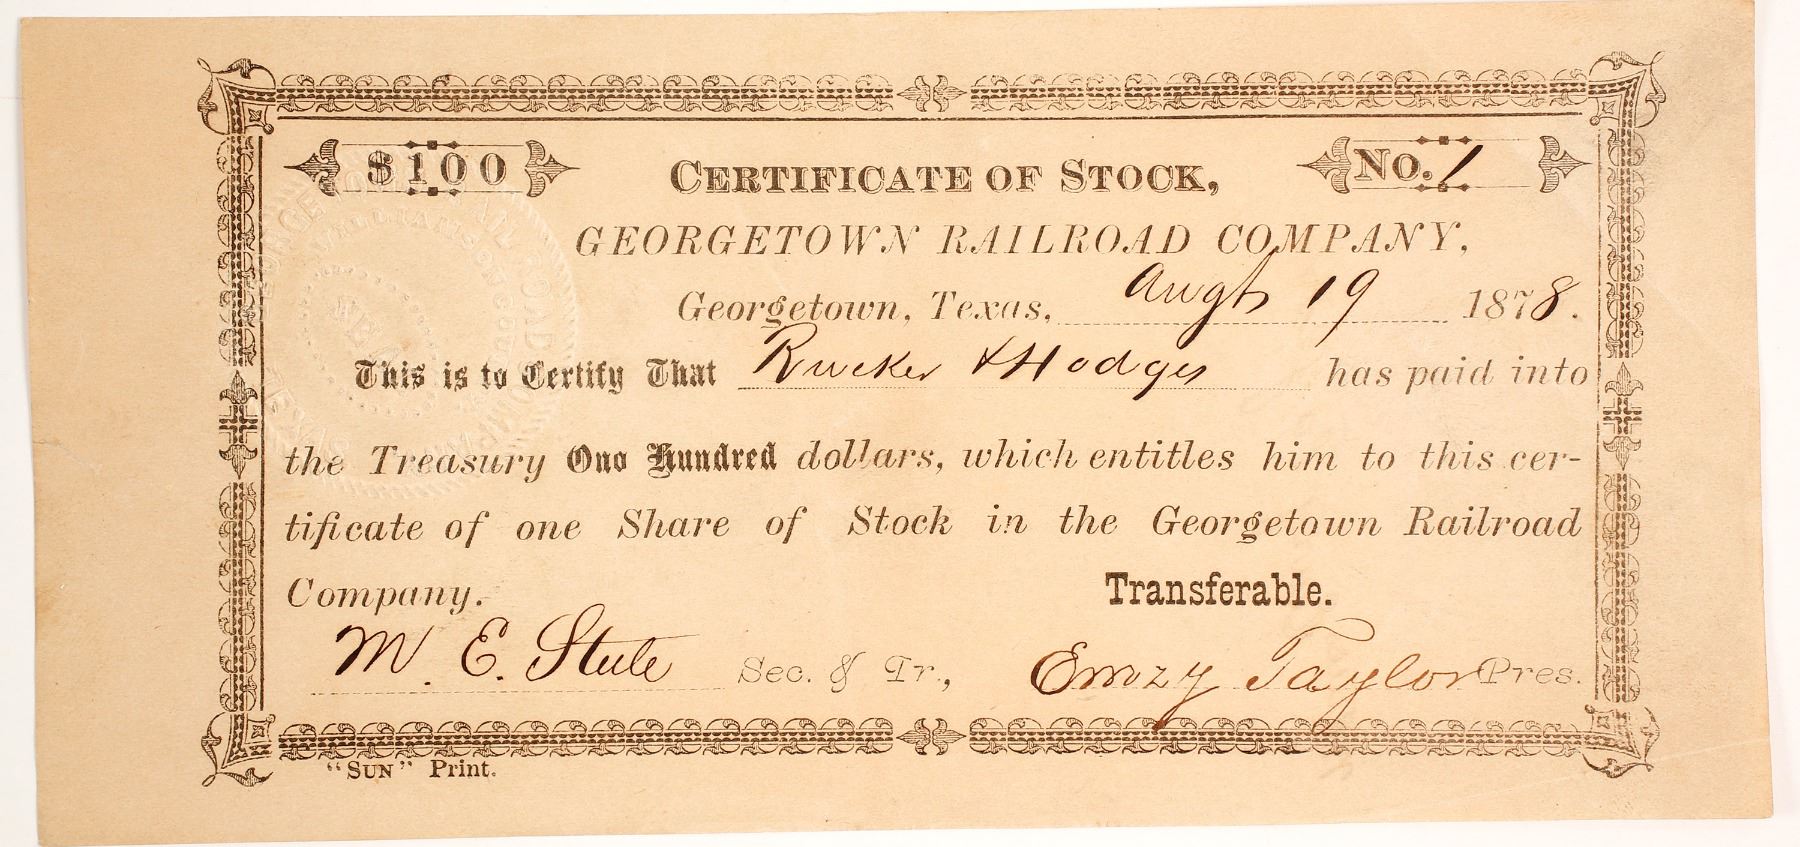 $100
CERTIFICATE OF STOCK,
NO. 1
GEORGETOWN RAILROAD COMPANY,
Georgetown, Texas, Augh 19 1878.
This is to Certify That Rucker & Hodges has paid into
the Treasury One Hundred dollars, which entitles him to this cer-
tificate of one Share of Stock in the Georgetown Railroad
Company. Transferable.
M. E. Steele Sec. & Tr., Emzy Taylor Pres.
"SUN" Print.